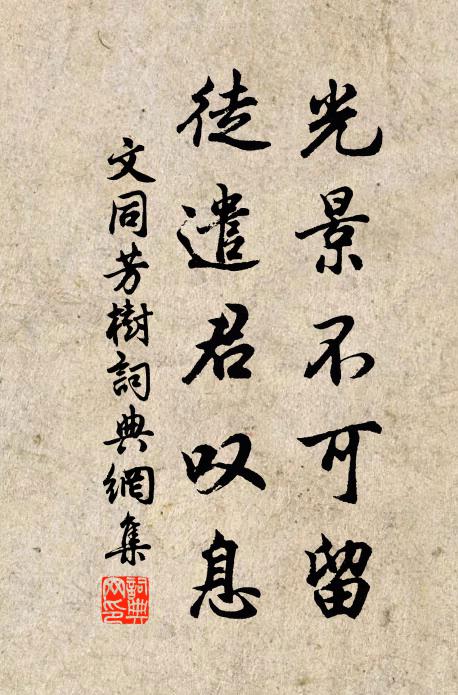 光景不可留
徒遣君叹息
文同芳樹詞典網集
詞典
网印